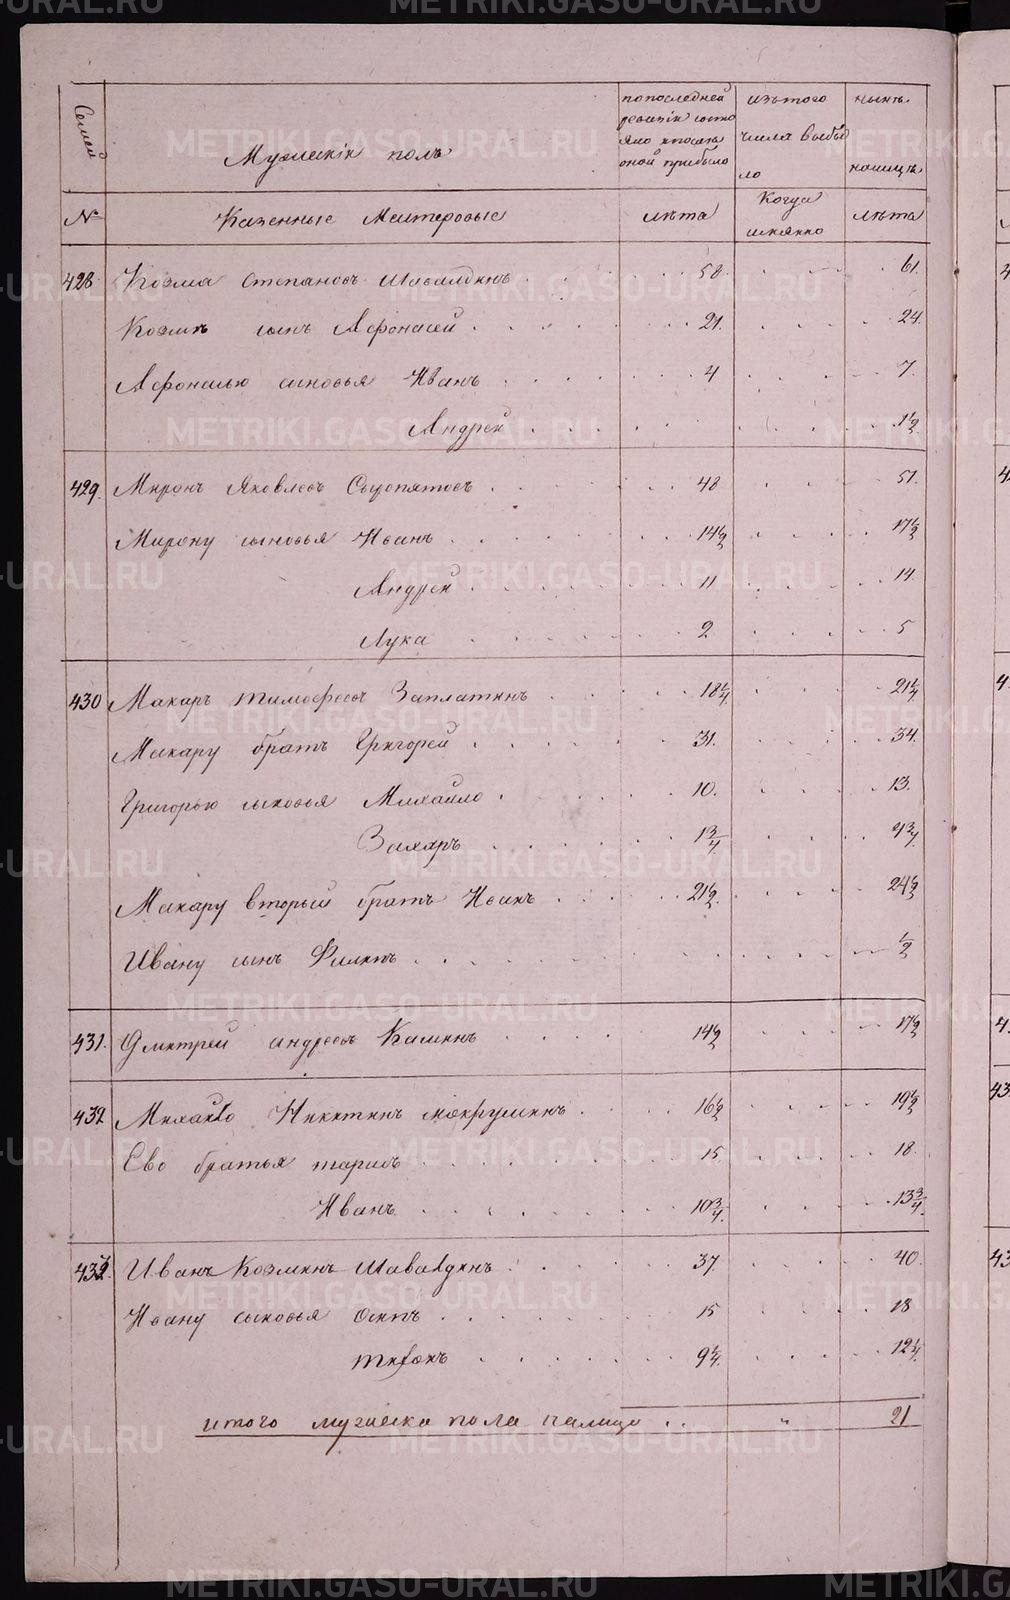 METRIKI.GASO-URAL.RU
Семей
Мужескiй полъ
по последней ревизiи состояло и после оной прибыло
изъ того числа выбыло
нынѣ на лицѣ
№
Казенные Мастеровые
лѣта
Когда имянно
лѣта
428 Козма Степановъ Шавалдинъ 58. 61.
Козмѣ сынъ Афонасей 21. 24.
Афонасью сыновья Иванъ 4 7.
Андрей 1½
429. Миронъ Яковлевъ 48 51.
Мирону сыновья Иванъ 14½ 17½
Андрей 11 14.
Лука 2 5
430 Макаръ Тимофеевъ Заплатинъ 18¼ 21¼
Макару братъ Григорей 31. 34.
Григорью сыновья Михайло 10. 13.
Захаръ 1¾ 4¾
Макару вторый братъ Иванъ 21½ 24½
Ивану сынъ Филипъ ½
431. Дмитрей Андреевъ Кашинъ 14½ 17½
432 Михайло Никитинъ Мокрушинъ 16½ 19½
Ево братья 15 18.
Иванъ 10¾ 13¾
433. Иванъ Козминъ Шавалдинъ 37 40.
Ивану сыновья Осипъ 15 18
Тихонъ 9¼ 12¼
итого мужеска пола налицо 〃 21